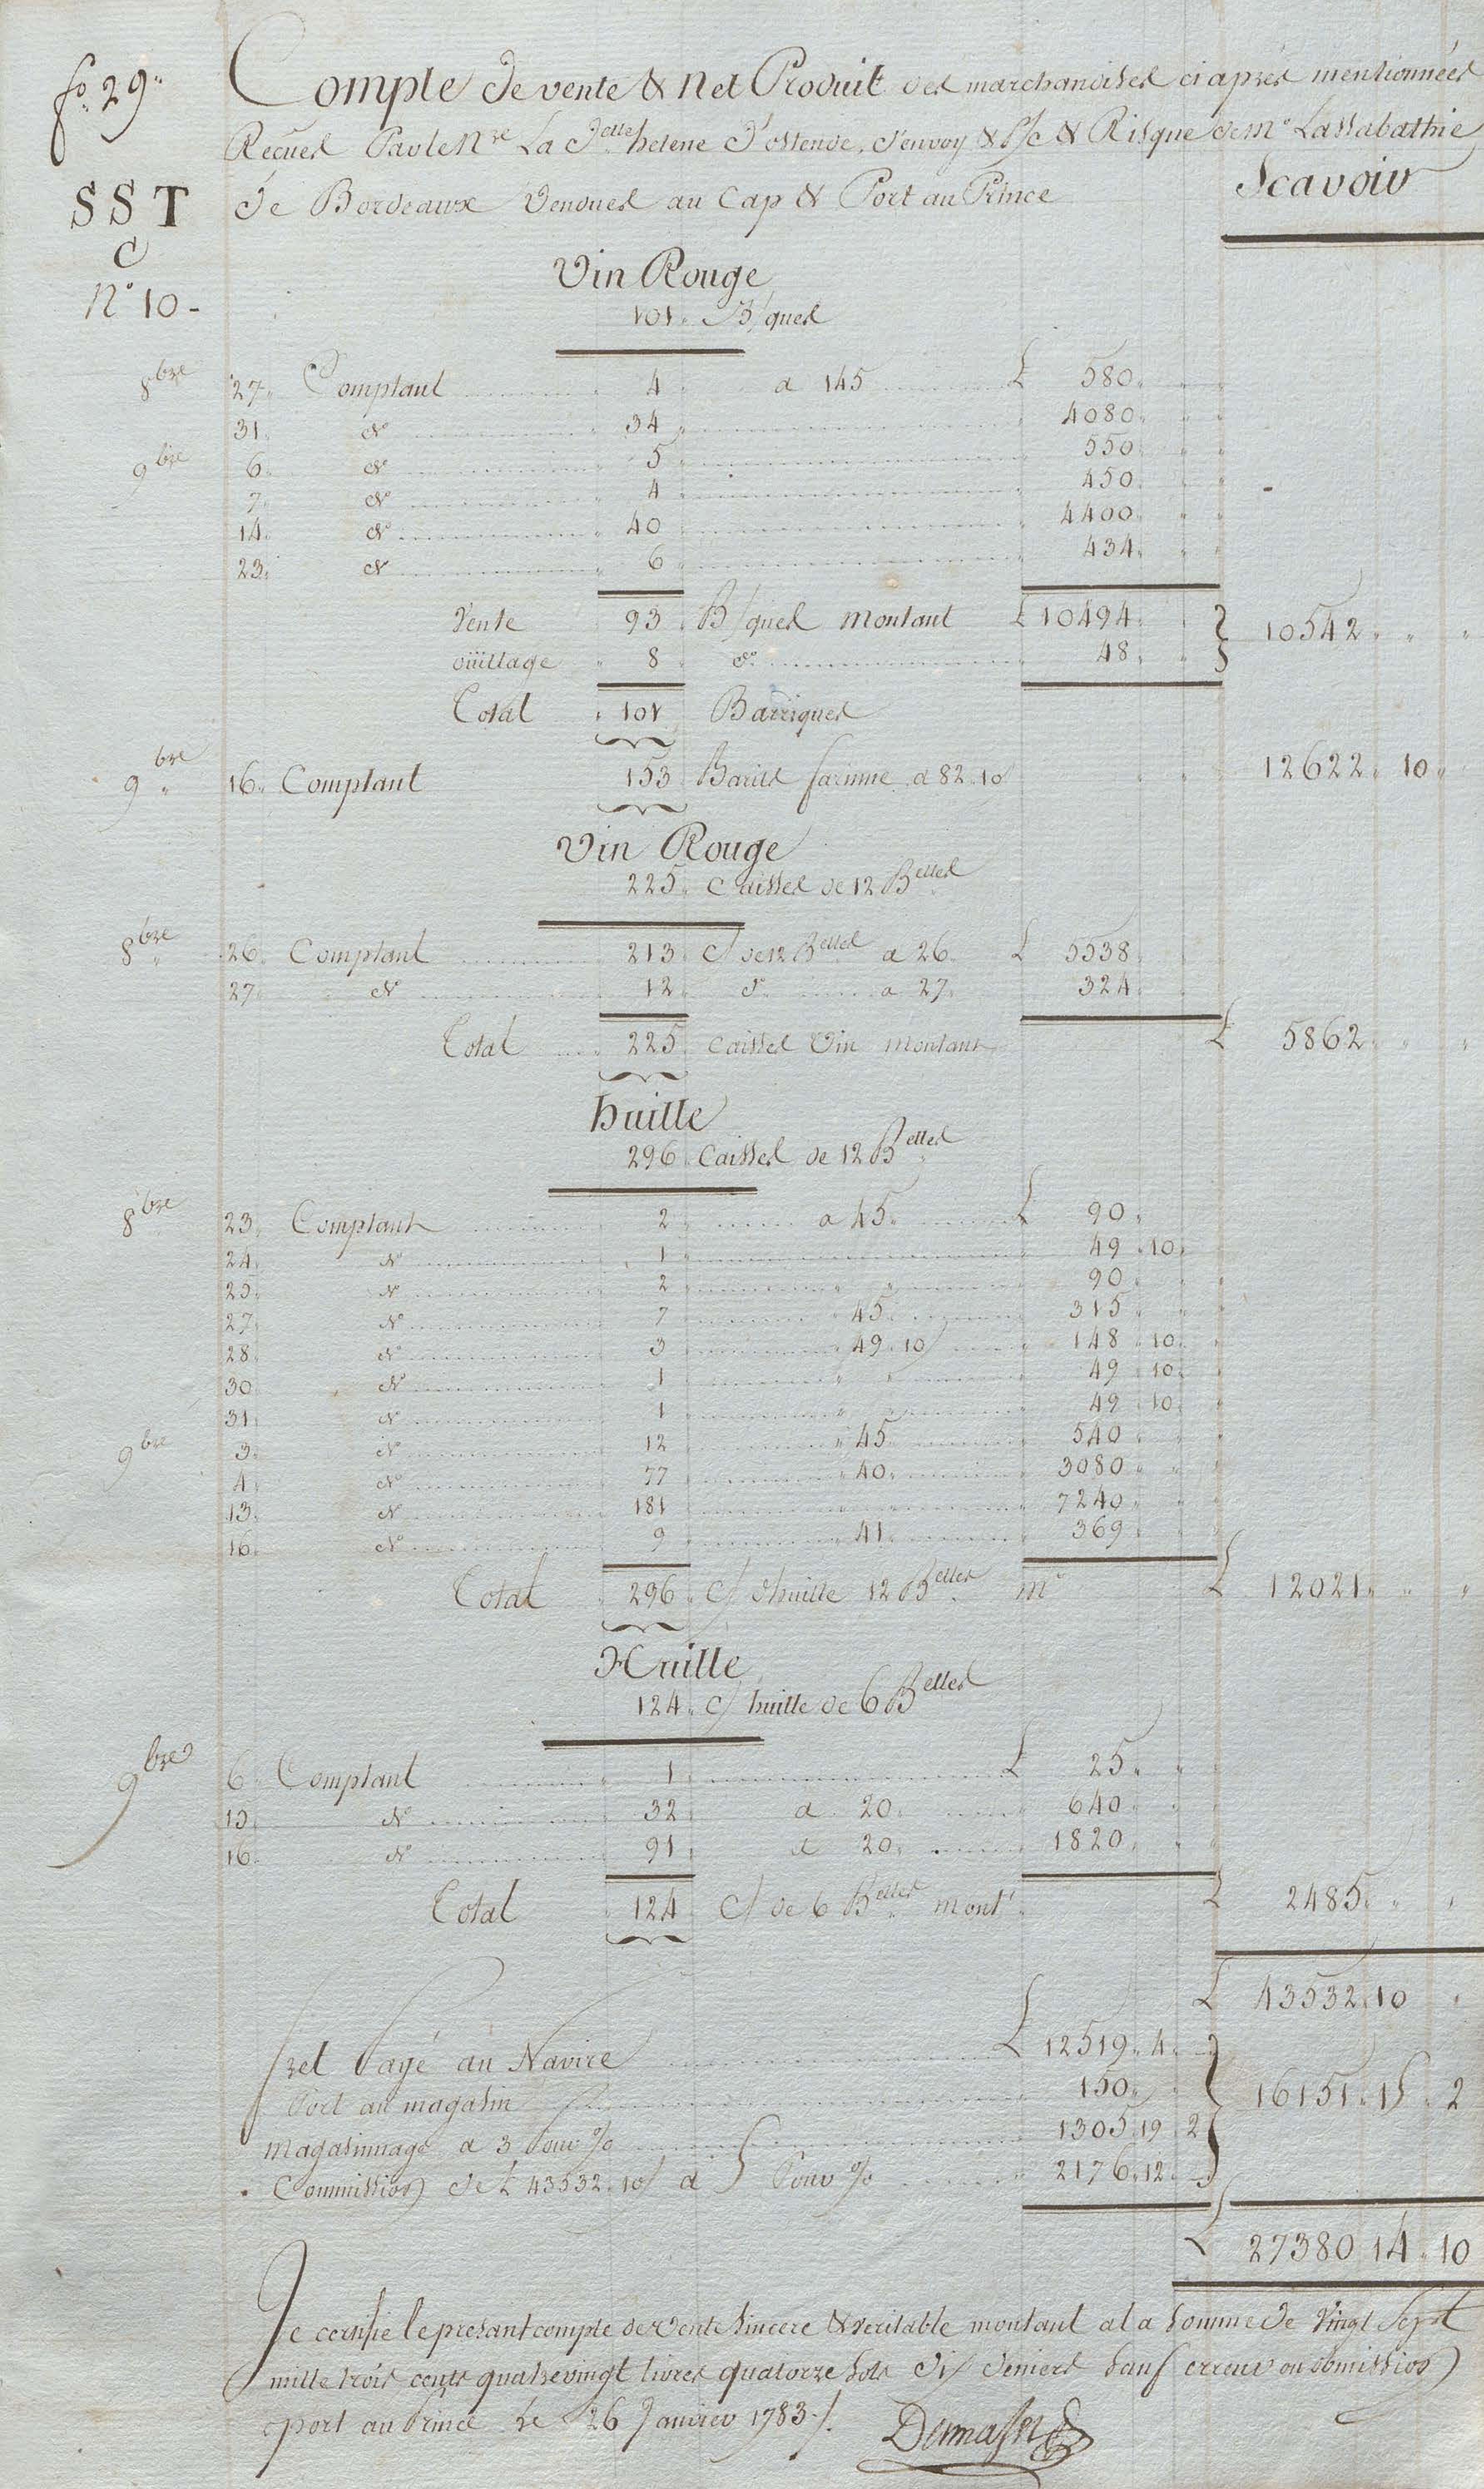 fo. 29.
Compte De vente & Net Produit des marchandises ci après mentionnées
Reçues Par le Nre La Delle helene D'ostende, d'envoy & P/c & Risque de Mr Lassabathie
De Bordeaux Vendues au Cap & Port au Prince
Scavoir
SST
C
No 10-
Vin Rouge
101. B/ques
8bre 27. Comptant 4 a 145 £ 580.
31. do 34 4080.
9bre 6. do 5 550.
7. do 4 450.
14. do 40 4400.
23. do 6 434.
Vente 93 B/ques montant £ 10494. } 10542
ouillage 8 do 48.
Total 101 Barriques
9bre 16. Comptant 153 Barils farinne a 82.10 12622. 10
Vin Rouge
225. Caisses de 12 Belles
8bre 26. Comptant 213 C/ de 12 Belles a 26 £ 5538
27. do 12 do a 27 324
Total 225. Caisses Vin montant £ 5862
huille
296 Caisses de 12 Belles
8bre 23. Comptant 2 a 45 £ 90
24. do 1 49. 10
25. do 2 90
27. do 7 45 315
28. do 3 49.10 148. 10
30 do 1 49. 10
31. do 1 49. 10
9bre 3. do 12 45 540
4. do 77 40 3080
13. do 181 7240
16. do 9 41 369
Total 296 C/ d'huille 12 Belles mt £ 12021
Huille
124. C/ huille de 6 Belles
9bre 6 Comptant 1 £ 25
15. do 32 a 20 640
16. do 91 a 20 1820
Total 124 C/ de 6 Belles mont. £ 2485
£ 43532. 10
fret Payé au Navire £ 12519. 4
Port au magasin 150. } 16151. 15. 2
Magasinnage a 3 Pour % 1305. 19. 2
Commission de £ 43532. 10/ a 5 Pour % 2176. 12
£ 27380. 14. 10
Je certifie le presant compte de Vente Sincere & veritable montant a la Somme de Vingt Sept
mille trois cents quatrevingt livres quatorze Sols dix deniers Sauf erreur ou obmission
port au Prince Le 26 Janvier 1783./.